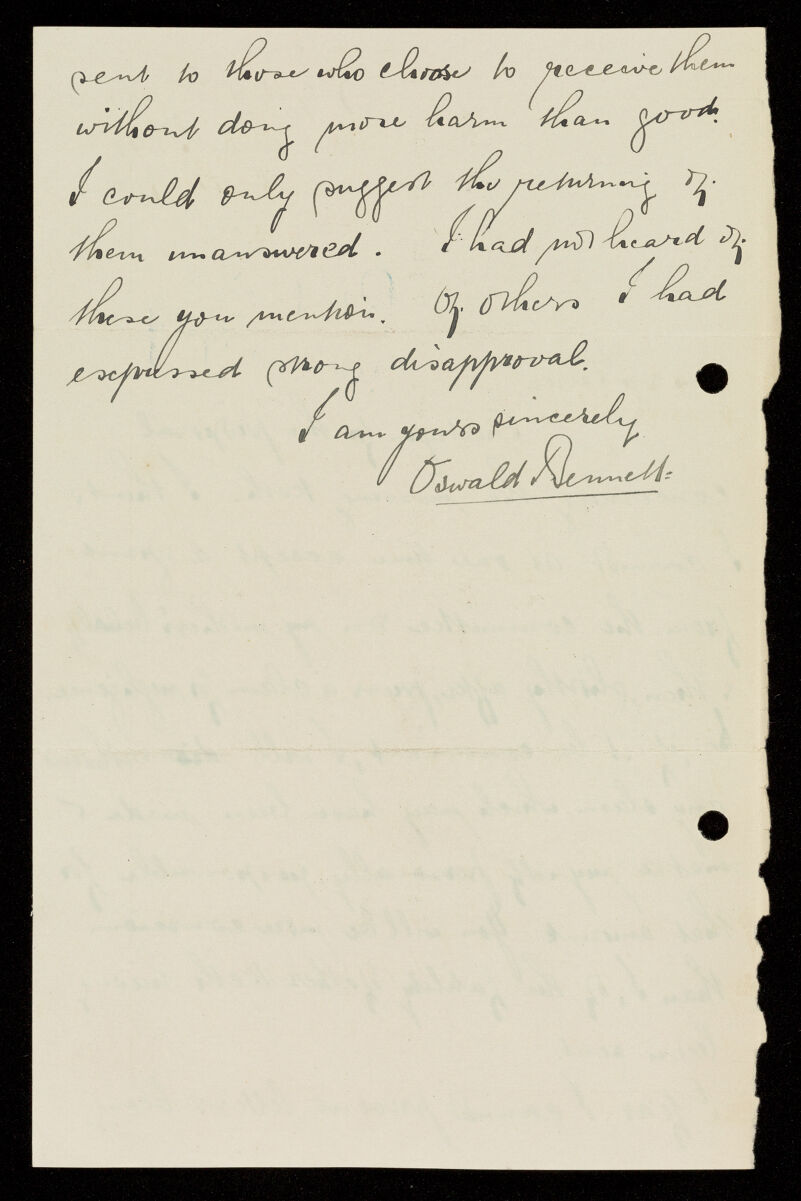 sent to those who choose to receive them
without doing more harm than good.
I could only suggest the returning of
them unanswered. I had not heard of
these you mention. Of others I had
expressed strong disapproval.
I am yours sincerely
Oswald Bennett